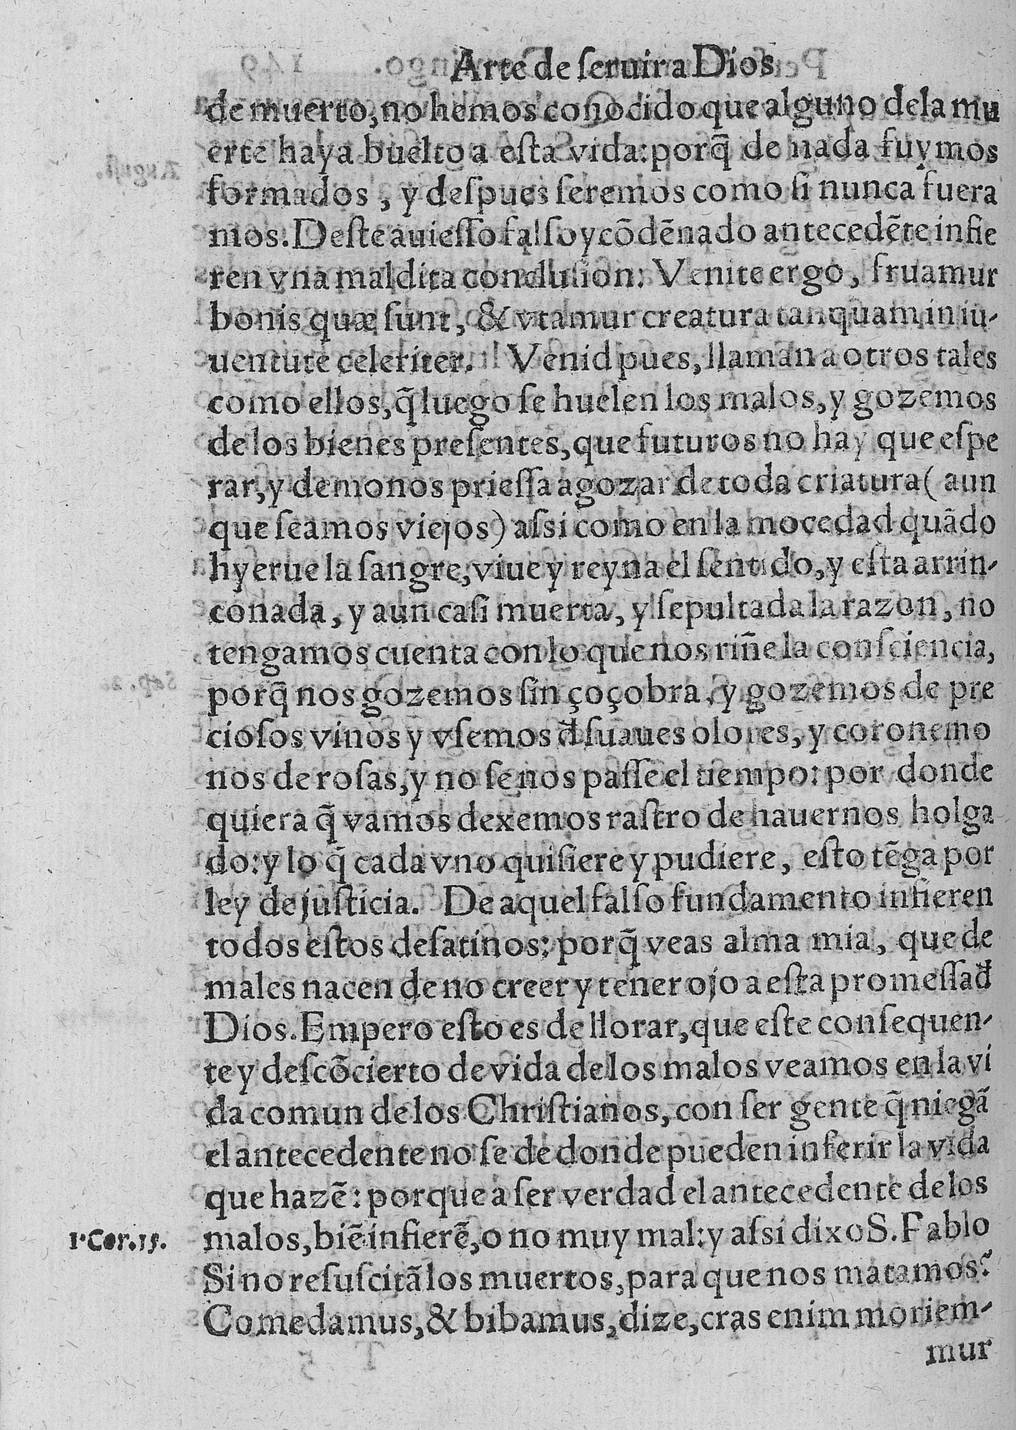 Arte de seruir a Dios
de muerto, no hemos conocido que alguno dela mu
erte haya buelto a esta vida: porq̃ de nada fuymos
formados, y despues seremos como si nunca fuera
mos. Deste auiesso falso y cõdẽnado antecedẽte infie
ren vna maldita conclusion: Venite ergo, fruamur
bonis quæ sunt, & vtamur creatura tanquam in iu-
uentute celeriter. Venid pues, llaman a otros tales
como ellos, q̃ luego se huelen los malos, y gozemos
de los bienes presentes, que futuros no hay que espe
rar, y demonos priessa a gozar de toda criatura (aun
que seamos viejos) assi como en la mocedad quãdo
hyerue la sangre, viue y reyna el sentido, y esta arrin-
conada, y aun casi muerta, y sepultada la razon, no
tengamos cuenta con lo que nos riñe la consciencia,
porq̃ nos gozemos sin çoçobra, y gozemos de pre
ciosos vinos y vsemos đ suaues olores, y coronemo
nos de rosas, y no se nos passe el tiempo: por donde
quiera q̃ vamos dexemos rastro de hauernos holga
do: y lo q̃ cada vno quisiere y pudiere, esto tẽga por
ley de justicia. De aquel falso fundamento infieren
todos estos desatinos: porq̃ veas alma mia, que de
males nacen de no creer y tener ojo a esta promessa đ
Dios. Empero esto es de llorar, que este consequen-
te y descõcierto de vida delos malos veamos en la vi
da comun delos Christianos, con ser gente q̃ niegã
el antecedente no se de donde pueden inferir la vida
que hazẽ: porque a ser verdad el antecedente de los
1. Cor. 15. malos, biẽ infierẽ, o no muy mal: y assi dixo S. Pablo
Si no resuscitã los muertos, para que nos matamos?
Comedamus, & bibamus, dize, cras enim moriem-
mur